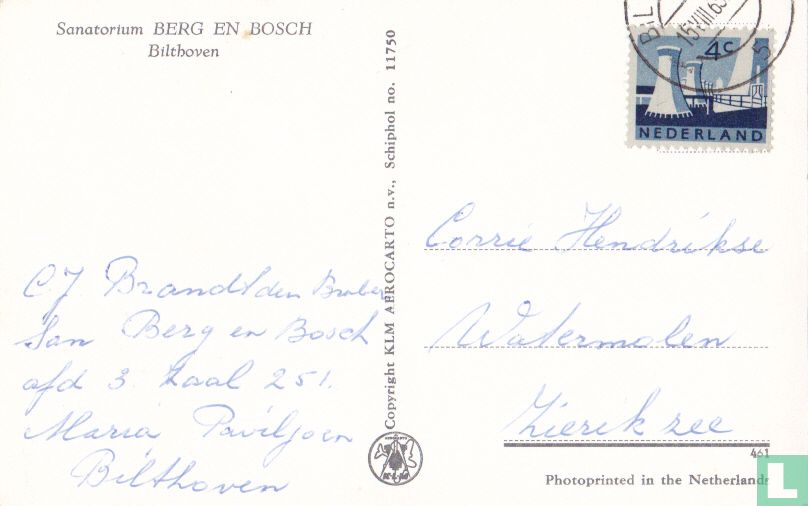 Sanatorium BERG EN BOSCH
Bilthoven
C.J. Brandt den Braber
San Berg en Bosch
afd 3. Zaal 251.
Maria Paviljoen
Bilthoven
Copyright KLM AEROCARTO n.v., Schiphol no. 11750
AEROCARTO
K·L·M
BIL
15 VIII 63
5
4c
NEDERLAND
Corrie Hendrikse
Watermolen
Zierikzee
461
Photoprinted in the Netherlands
L